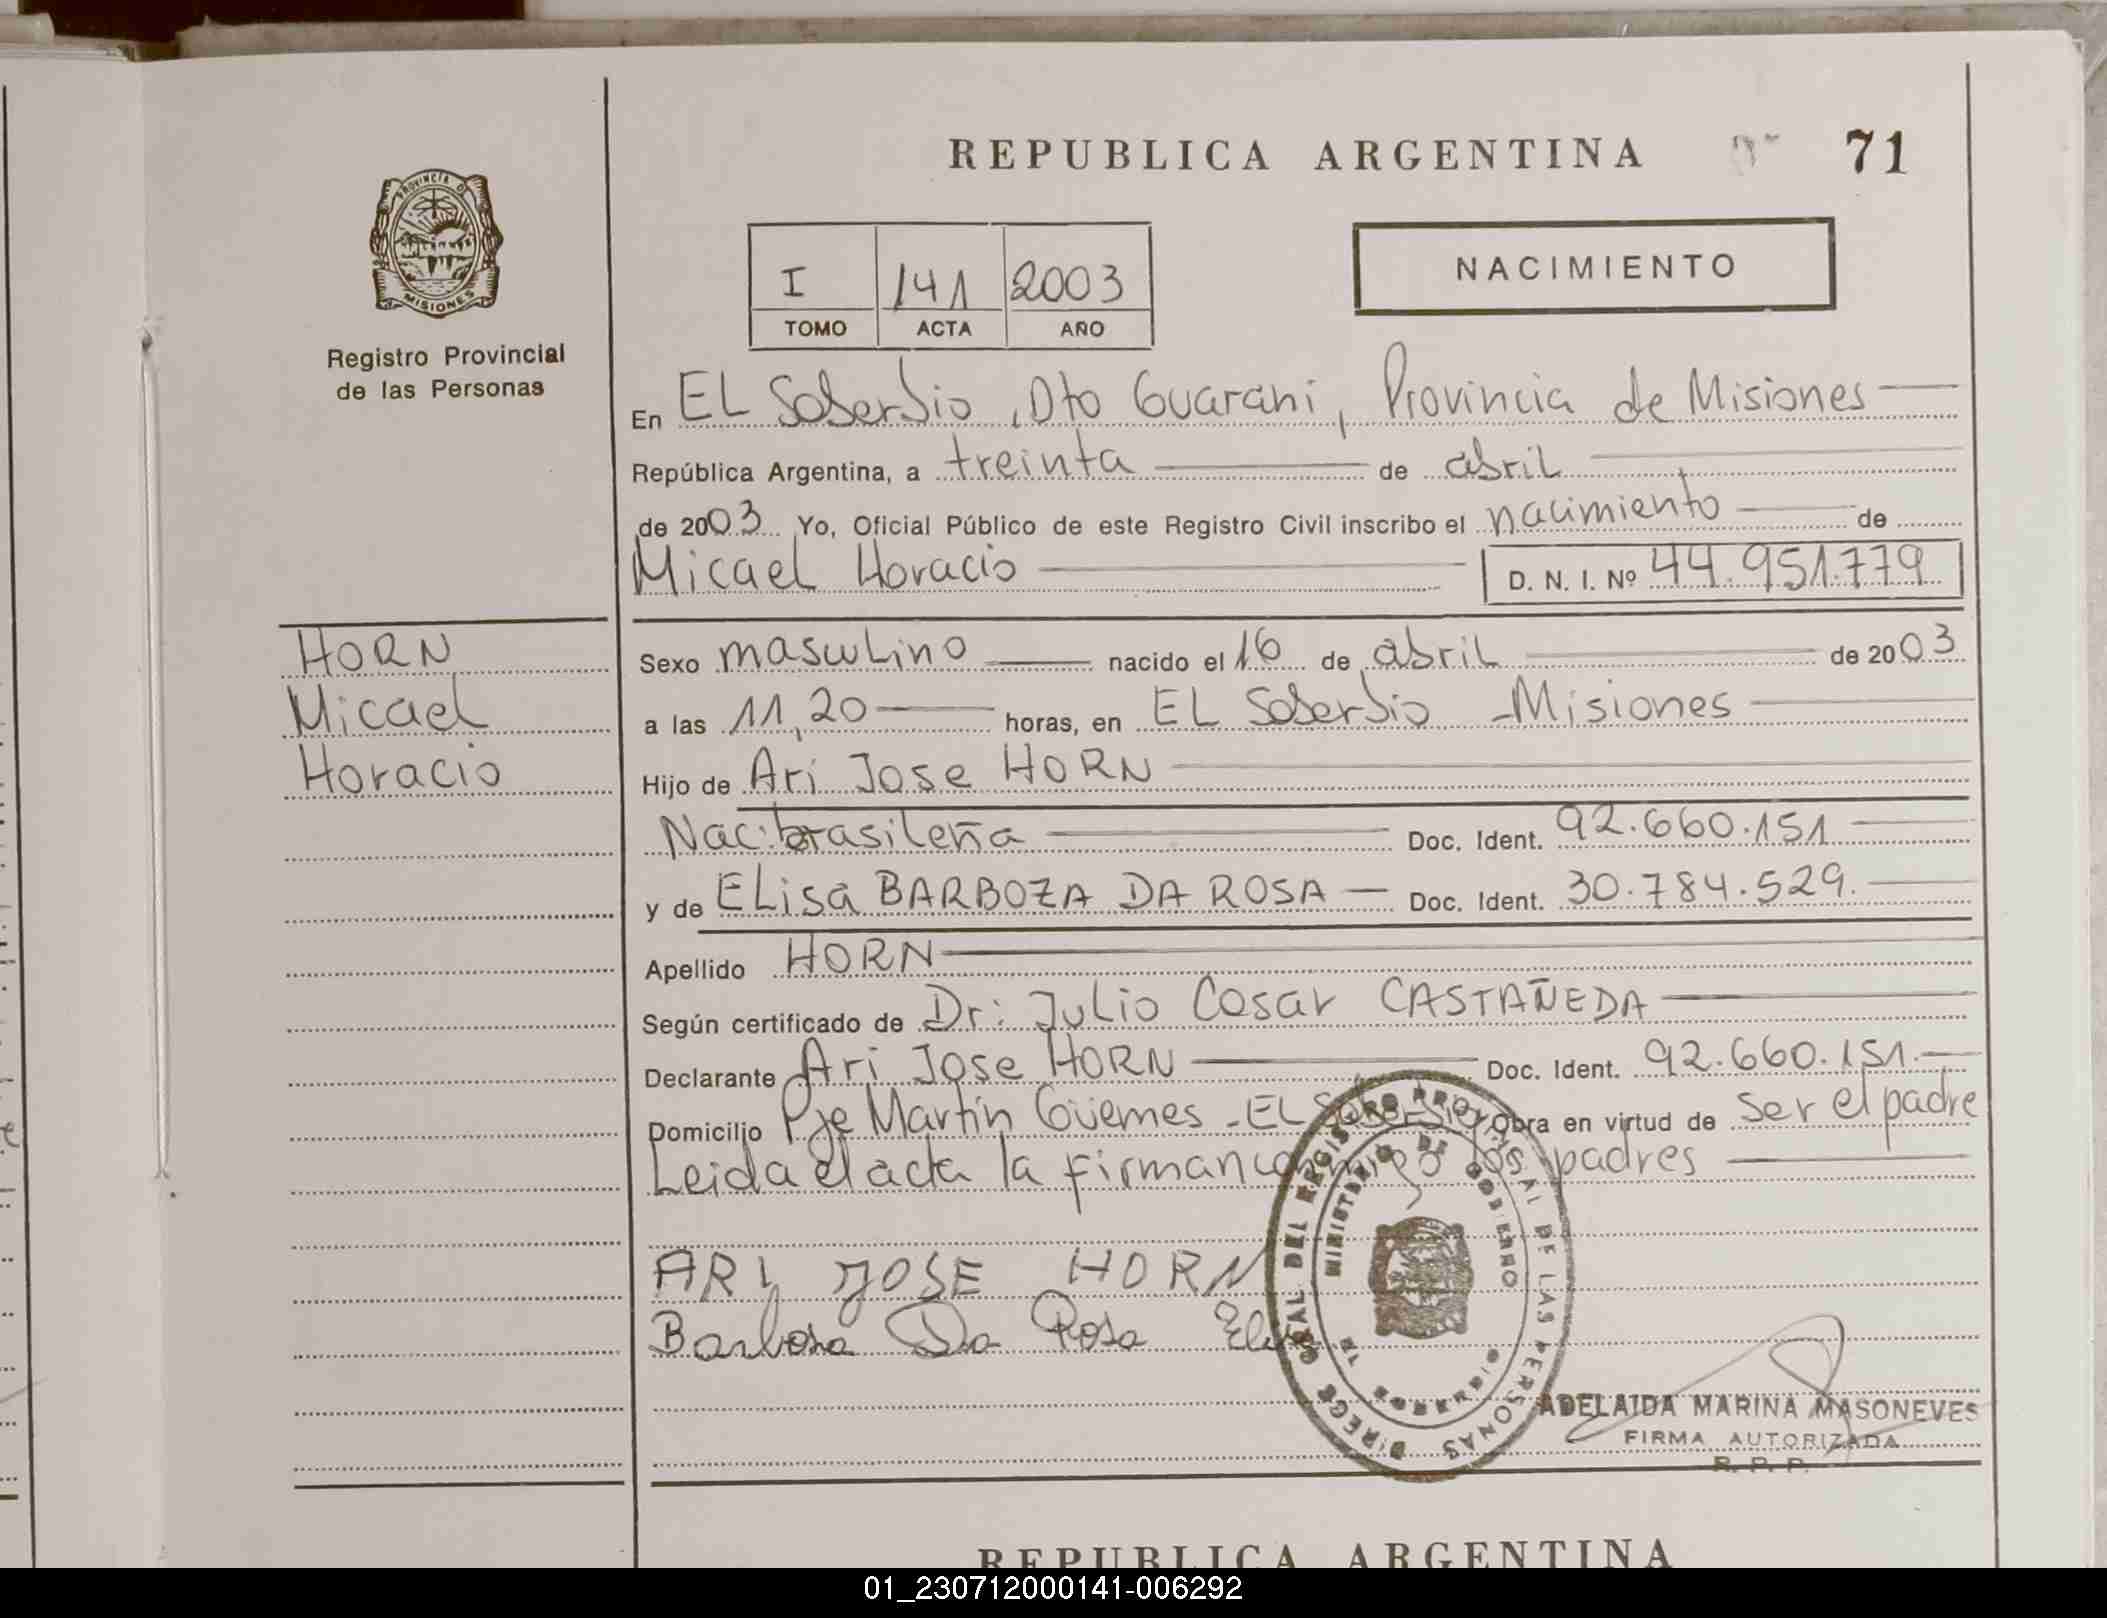 REPUBLICA ARGENTINA 71
PROVINCIA DE
MISIONES
Registro Provincial
de las Personas
I 141 2003
TOMO ACTA AÑO
NACIMIENTO
En EL Soberbio, Dto Guarani, Provincia de Misiones
República Argentina, a treinta de abril
de 2003 Yo, Oficial Público de este Registro Civil inscribo el nacimiento de
Micael Horacio D. N. I. Nº 44.951.779
HORN
Micael
Horacio
Sexo masculino nacido el 16 de abril de 2003
a las 11,20 horas, en EL Soberbio - Misiones
Hijo de Ari Jose HORN
Nac: brasileña Doc. Ident. 92.660.151
y de ELisa BARBOZA DA ROSA Doc. Ident. 30.784.529.
Apellido HORN
Según certificado de Dr: Julio Cesar CASTAÑEDA
Declarante Ari Jose HORN Doc. Ident. 92.660.151.
Domicilio Pje Martín Güemes - EL Soberbio Obra en virtud de ser el padre
Leida el acta la firman conmigo los padres
ARI JOSE HORN
Barbosa Da Rosa Elisa
DIRECC GRAL DEL REGISTRO PROVINCIAL DE LAS PERSONAS
MINISTERIO DE GOBIERNO
ADELAIDA MARINA MASONEVES
FIRMA AUTORIZADA
R. P. P.
REPUBLICA ARGENTINA
01_230712000141-006292